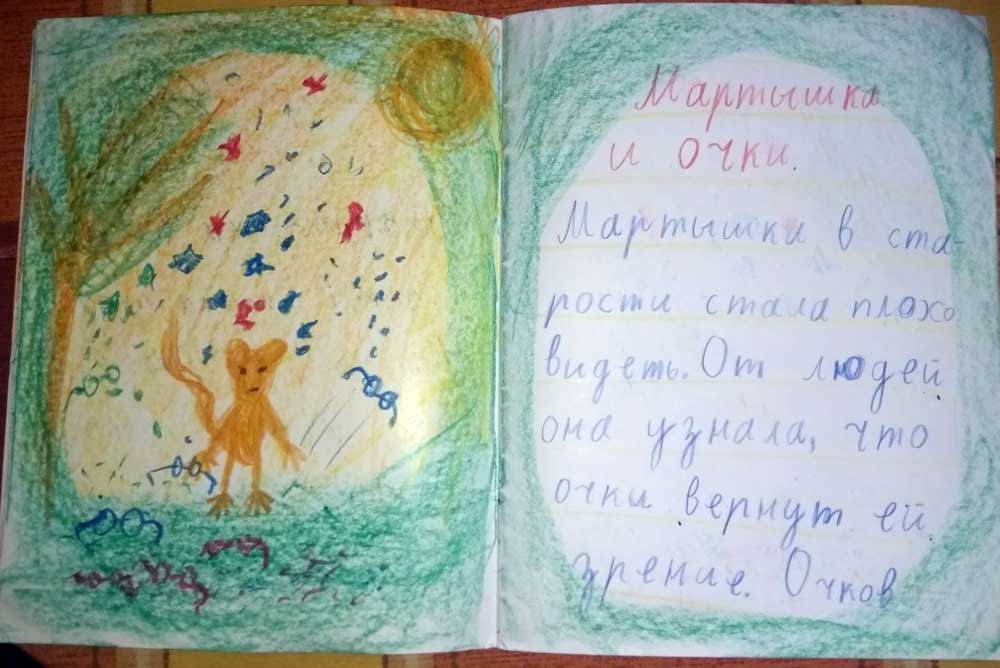 Мартышка
и очки.
Мартышка в ста-
рости стала плохо
видеть. От людей
она узнала, что
очки вернут ей
зрение. Очков